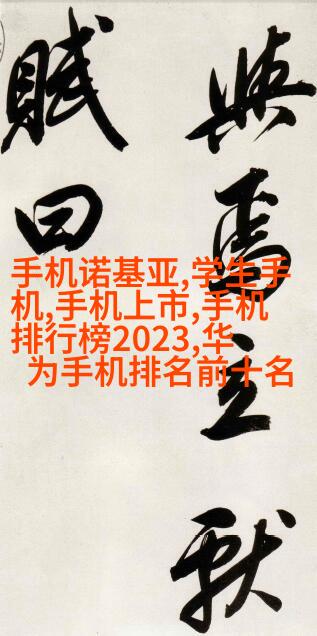 與 立
賦曰
手机诺基亚,学生手
机,手机上市,手机
排行榜2023,华
为手机排名前十名